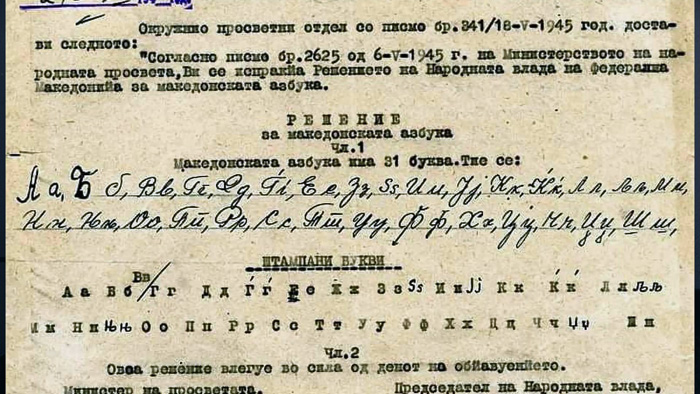 Окружнио просветни отдел со писмо бр.341/18-V-1945 год. доста-
ви следното:
"Согласно писмо бр.2625 од 6-V-1945 г. на Министерството на на-
родната просвета,Ви се испраќја Решението на Народната влада на Федерална
Македонија за македонската азбука.
РЕШЕНИЕ
за македонската азбука
Чл.1
Македонската азбука има 31 буква.Тие се:
Аа, Бб, Вв, Гг, Дд, Ѓѓ, Ее, Зз, Ѕѕ, Ии, Јј, Кк, Ќќ, Лл, Љљ, Мм,
Нн, Њњ, Оо, Пп, Рр, Сс, Тт, Уу, Фф, Хх, Цц, Чч, Џџ, Шш,
ШТАМПАНИ БУКВИ
Вв
Аа Бб/Гг Дд Ѓѓ Ее Жж Зз Ѕѕ Ии Јј Кк Ќќ Лл Љљ
Мм Нн Њњ Оо Пп Рр Сс Тт Уу Фф Хх Цц Чч Џџ Шш
Чл.2
Оваа решение влегуе во сила од денот на објавуенјето.
Министер на просветата. Председател на Народната влада,